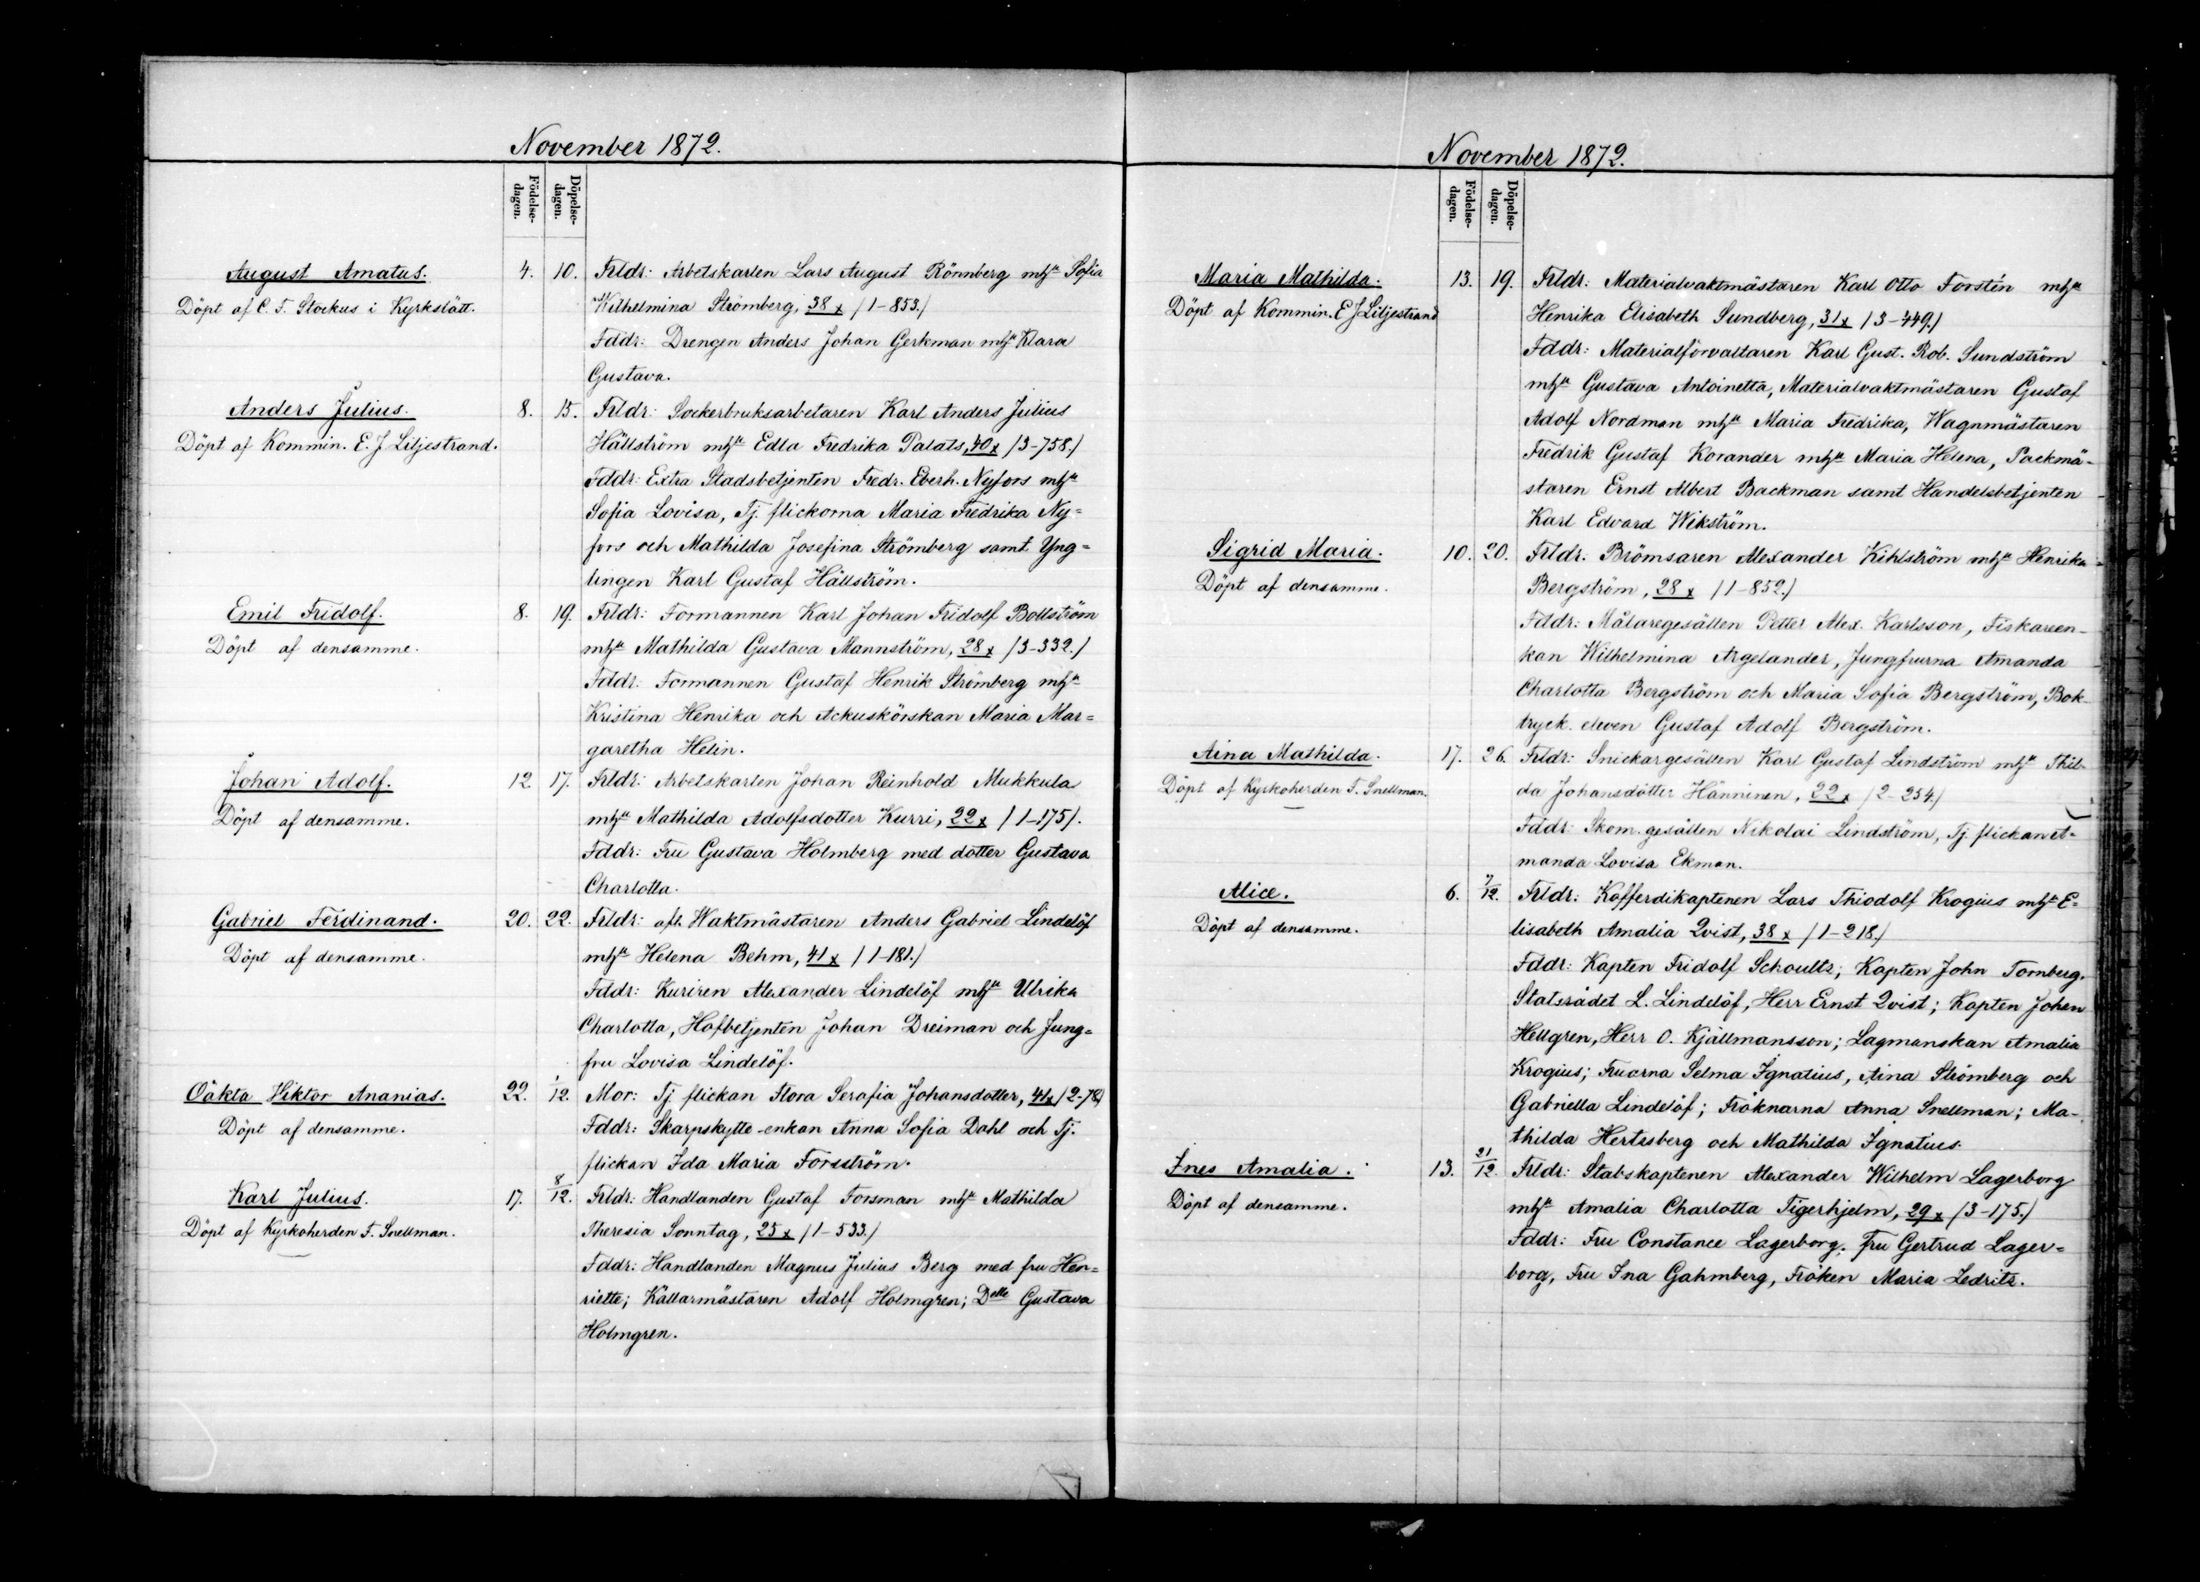 November 1872.
Födelse-
dagen.
Döpelse-
dagen.
August Amatus. 4. 10. Frldr: Arbetskarlen Lars August Rönnberg mhu Sofia
Döpt af C. F. Stockus i Kyrkslätt. Wilhelmina Strömberg, 38 x /1-853./
Fddr: Drengen Anders Johan Gerkman mhu Klara
Gustava.
Anders Julius. 8. 15. Frldr: Sockerbruksarbetaren Karl Anders Julius
Döpt af Kommin. E. J Liljestrand. Hällström mhu Edla Fredrika Palats, 40 x /3-758./
Fddr: Extra Stadsbetjenten Fredr. Eberh. Nyfors mhu
Sofia Lovisa, Tj. flickorna Maria Fredrika Ny=
fors och Mathilda Josefina Strömberg samt Yng=
lingen Karl Gustaf Hällström.
Emil Fridolf. 8. 19. Frldr: Formannen Karl Johan Fridolf Bollström
Döpt af densamme. mhu Mathilda Gustava Mannström, 28 x /3-332./
Fddr: Formannen Gustaf Henrik Strömberg mhu
Kristina Henrika och Ackuskörskan Maria Mar=
garetha Helin.
Johan Adolf. 12 17. Frldr: Arbetskarlen Johan Reinhold Mukkula
Döpt af densamme. mhu Mathilda Adolfsdotter Kurri, 22 x /1-175/.
Fddr: Fru Gustava Holmberg med dotter Gustava
Charlotta.
Gabriel Ferdinand. 20. 22. Frldr: afl. Waktmästaren Anders Gabriel Lindelöf
Döpt af densamme. mhu Helena Behm, 41 x /1-181./
Fddr: Kuriren Alexander Lindelöf mhu Ulrika
Charlotta, Hofbetjenten Johan Dreiman och Jung=
fru Lovisa Lindelöf.
Oäkta Viktor Ananias. 22. 1/12. Mor: Tj. flickan Flora Serafia Johansdotter, 41 x /2-78/
Döpt af densamme. Fddr: Skarpskytte-enkan Anna Sofia Dahl och Tj.
flickan Ida Maria Forsström.
Karl Julius. 17. 8/12. Frldr: Handlanden Gustaf Forsman mhu Mathilda
Döpt af Kyrkoherden F. Snellman. Theresia Sonntag, 25 x /1-533./
Fddr: Handlanden Magnus Julius Berg med fru Hen=
riette; Källarmästaren Adolf Holmgren; Delle Gustava
Holmgren.
November 1872.
Födelse-
dagen.
Döpelse-
dagen.
Maria Mathilda. 13. 19. Frldr: Materialvaktmästaren Karl Otto Forstén mhu
Döpt af Kommin. E J Liljestrand Henrika Elisabeth Sundberg, 31 x /3-449./
Fddr: Materialförvaltaren Karl Gust. Rob. Sundström
mhu Gustava Antoinetta, Materialvaktmästaren Gustaf
Adolf Nordman mhu Maria Fredrika, Wagnmästaren
Fredrik Gustaf Korander mhu Maria Helena, Packmä-
staren Ernst Albert Backman samt Handelsbetjenten
Karl Edvard Wikström.
Sigrid Maria. 10. 20. Frldr: Brömsaren Alexander Kihlström mhu Henrika
Döpt af densamme. Bergström, 28 x /1-852./
Fddr: Målaregesällen Petter Alex. Karlsson, Fiskareen-
kan Wilhelmina Argelander, Jungfrurna Amanda
Charlotta Bergström och Maria Sofia Bergström, Bok-
tryck. eleven Gustaf Adolf Bergström.
Aina Mathilda. 17. 26. Frldr: Snickargesällen Karl Gustaf Lindström mhu Thil-
Döpt af Kyrkoherden F. Snellman. da Johansdotter Hänninen, 22 x /2-254./
Fddr: Skom. gesällen Nikolai Lindström, Tj. flickan A-
manda Lovisa Ekman.
Alice. 6. 7/12. Frldr: Kofferdikaptenen Lars Thiodolf Krogius mhu E-
Döpt af densamme. lisabeth Amalia Qvist, 38 x /1-218./
Fddr: Kapten Fridolf Schoultz; Kapten John Tornberg.
Statsrådet L. Lindelöf, Herr Ernst Qvist; Kapten Johan
Hellgren, Herr O. Kjällmansson; Lagmanskan Amalia
Krogius; Fruarna Selma Ignatius, Aina Strömberg och
Gabriella Lindelöf; Fröknarna Anna Snellman; Ma-
thilda Hertzberg och Mathilda Ignatius.
Ines Amalia. 13. 21/12. Frldr: Stabskaptenen Alexander Wilhelm Lagerborg
Döpt af densamme. mhu Amalia Charlotta Tigerhjelm, 29 x /3-175./
Fddr: Fru Constance Lagerborg. Fru Gertrud Lager=
borg, Fru Ina Gahmberg, Fröken Maria Zedritz.